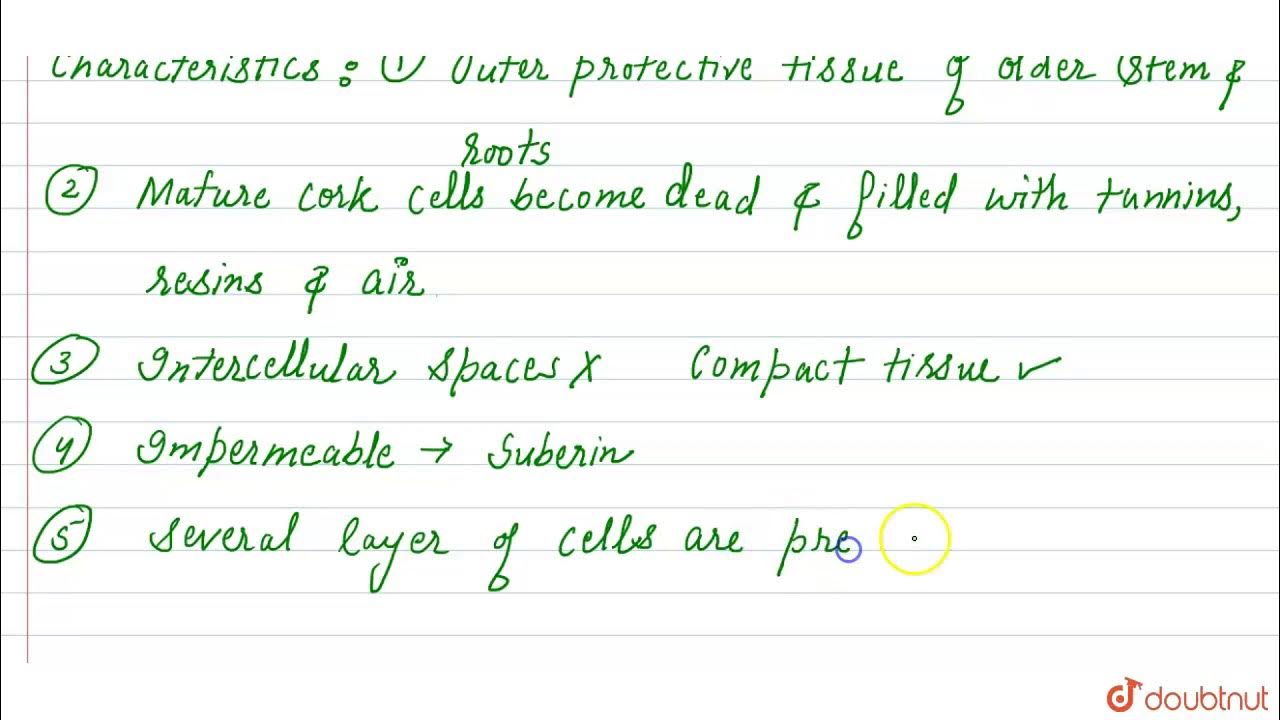 Characteristics : ① Outer protective tissue of older stem &
roots
② Mature cork cells become dead & filled with tannins,
resins & air
③ Intercellular spaces X Compact tissue ✓
④ Impermeable → Suberin
⑤ Several layer of cells are pre
doubtnut